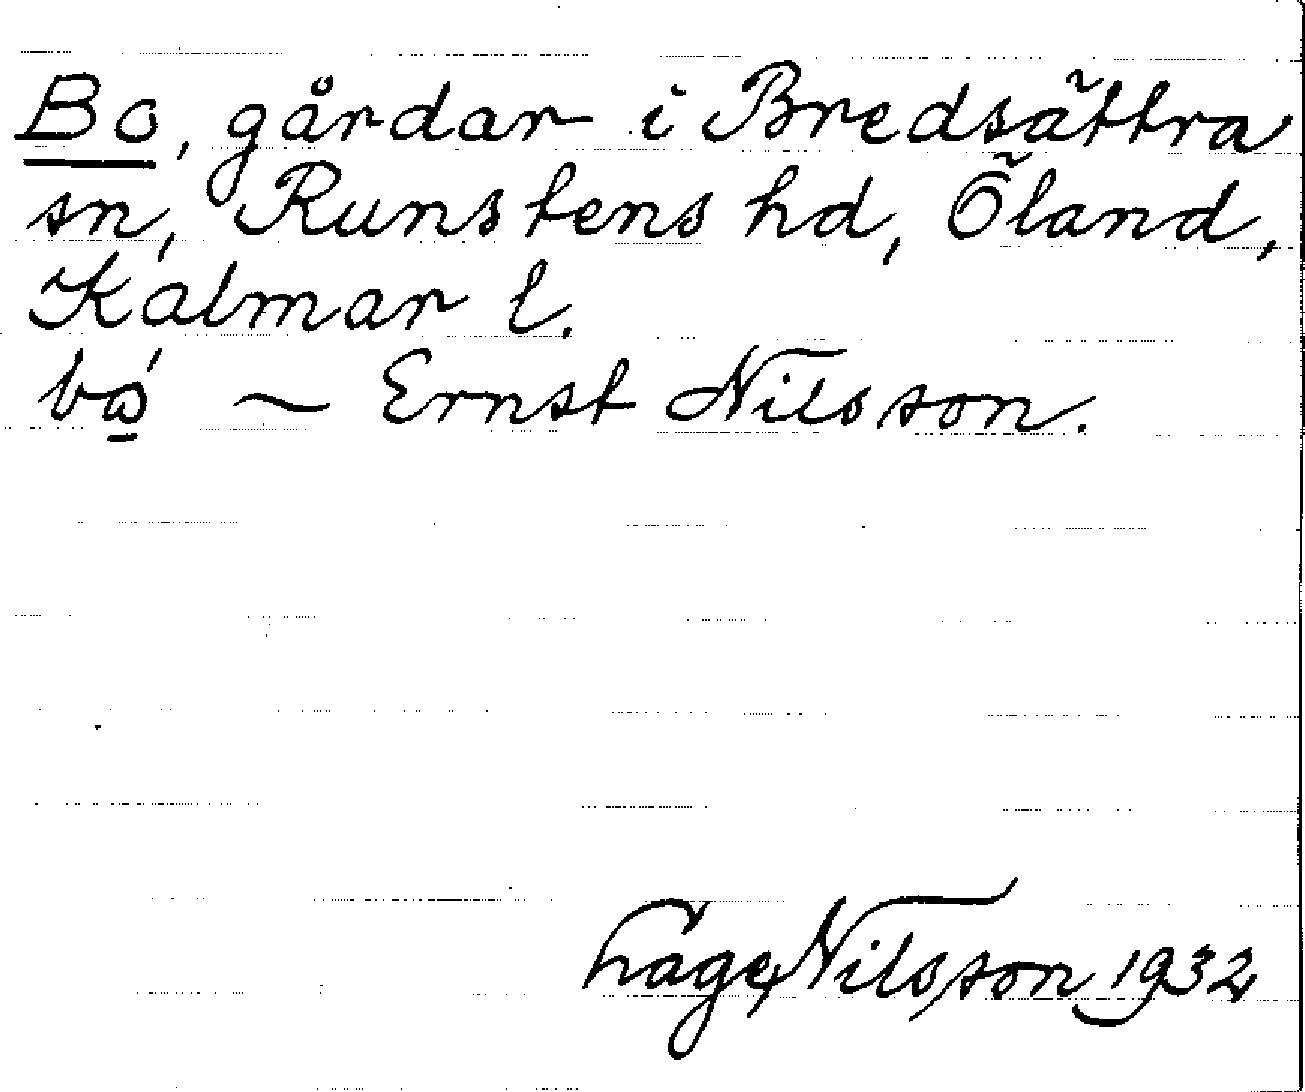 Bo, gårdar i Bredsättra
sn, Runstens hd, Öland,
Kalmar l.
~ Ernst Nilsson.
Tage Nilsson 1932